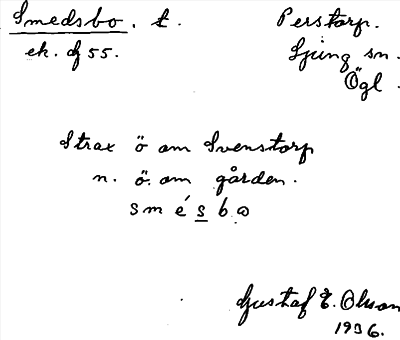 Smedsbo. t.
Perstorp.
ek. df 55.
Ljung sn.
Ögl.
Strax ö om Svenstorp
n. ö. om gården.
smésbo
Gustaf E. Olson
1936.